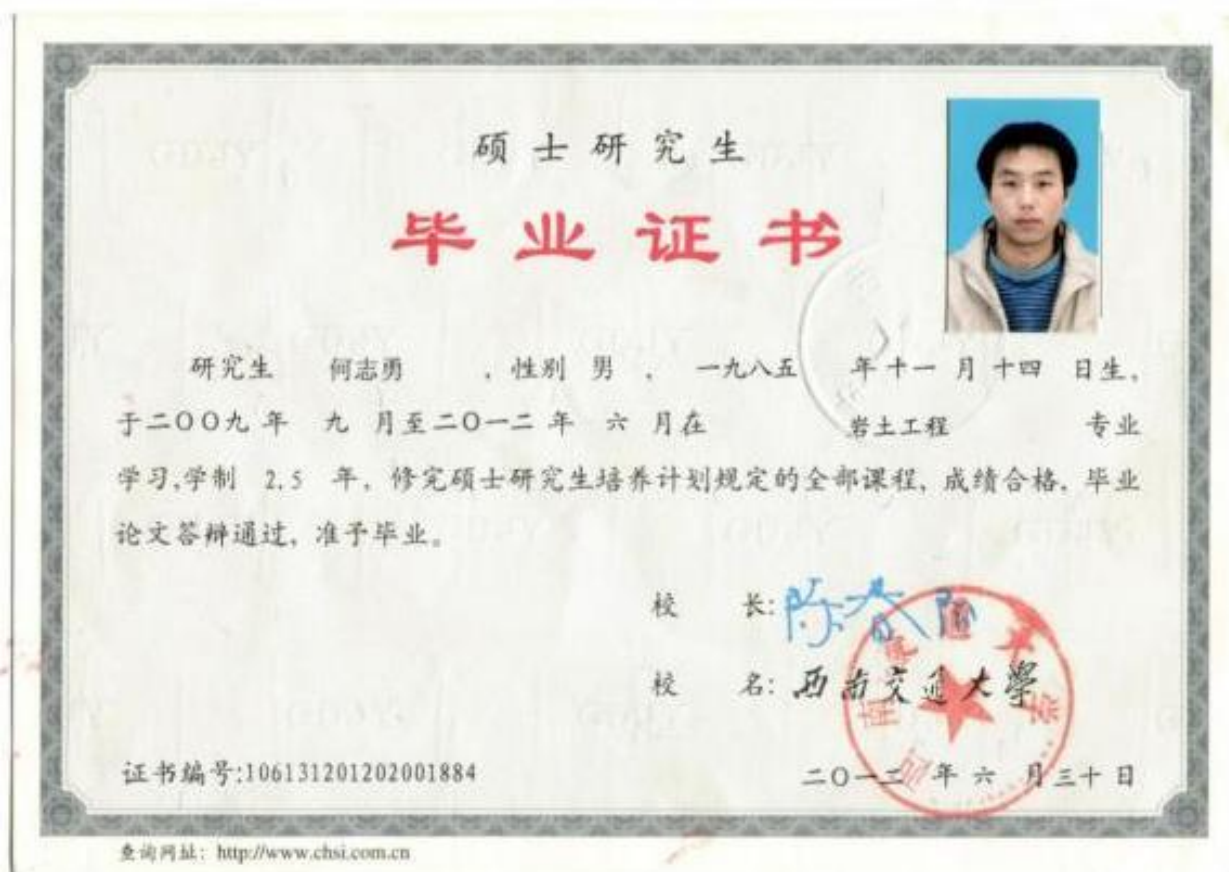 硕士研究生
毕业证书
研究生 何志勇 ，性别 男 ， 一九八五 年十一月十四 日生，
于二〇〇九年 九 月至二〇一二年 六 月在 岩土工程 专业
学习,学制 2.5 年，修完硕士研究生培养计划规定的全部课程，成绩合格，毕业
论文答辩通过，准予毕业。
校 长:陈春阳
校 名:西南交通大學
证书编号:106131201202001884
二〇一二 年 六 月三十日
查询网址：http://www.chsi.com.cn